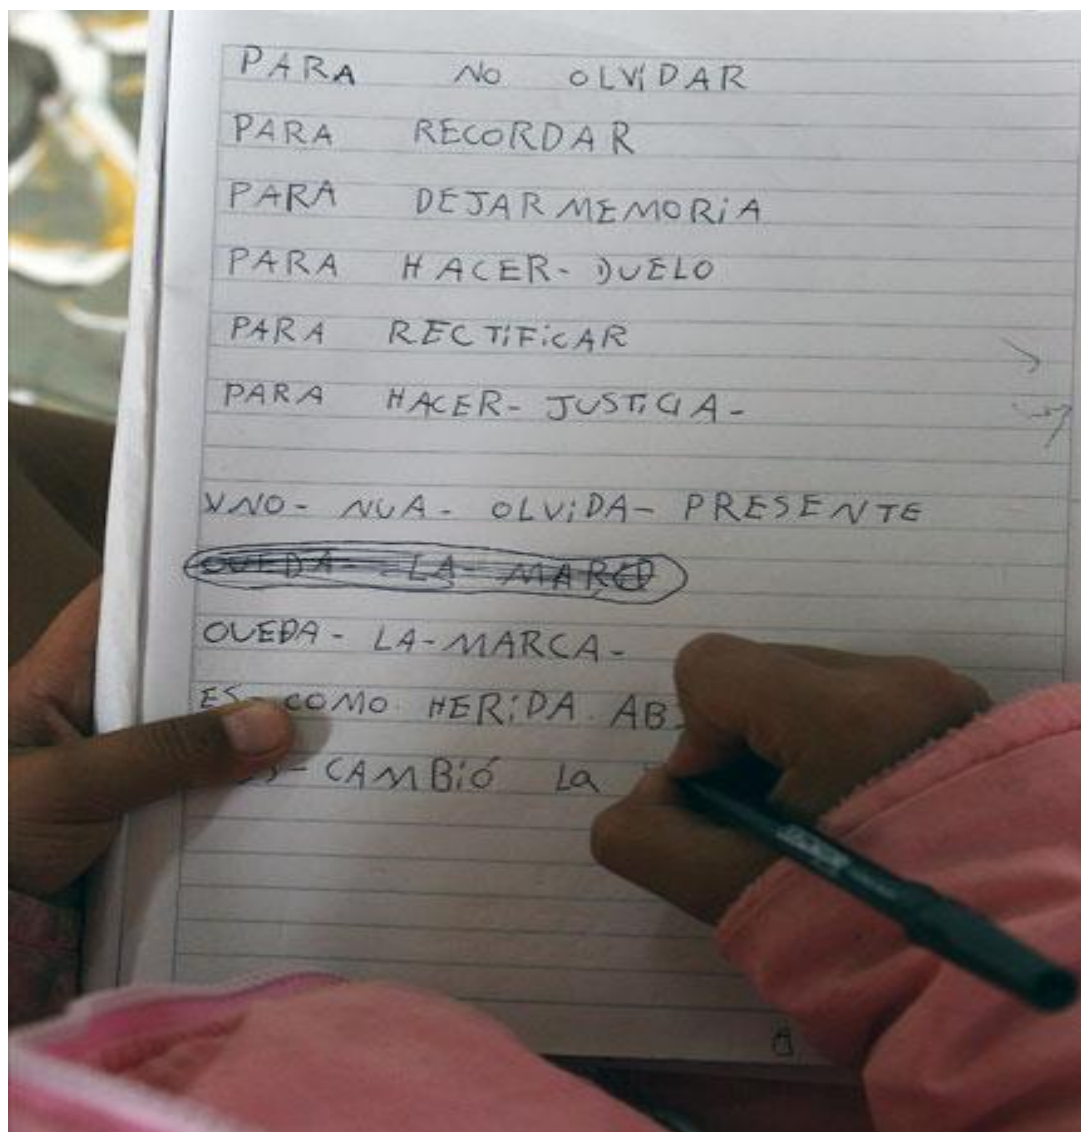 PARA NO OLViDAR
PARA RECORDAR
PARA DEJAR MEMORiA
PARA HACER- DUELO
PARA RECTiFiCAR
PARA HACER- JUSTiCiA-
VNO- NUA- OLViDA- PRESENTE
OUEDA- LA- MARCO
OUEDA- LA-MARCA-
ES- COMO HERiDA AB
CAMBió La